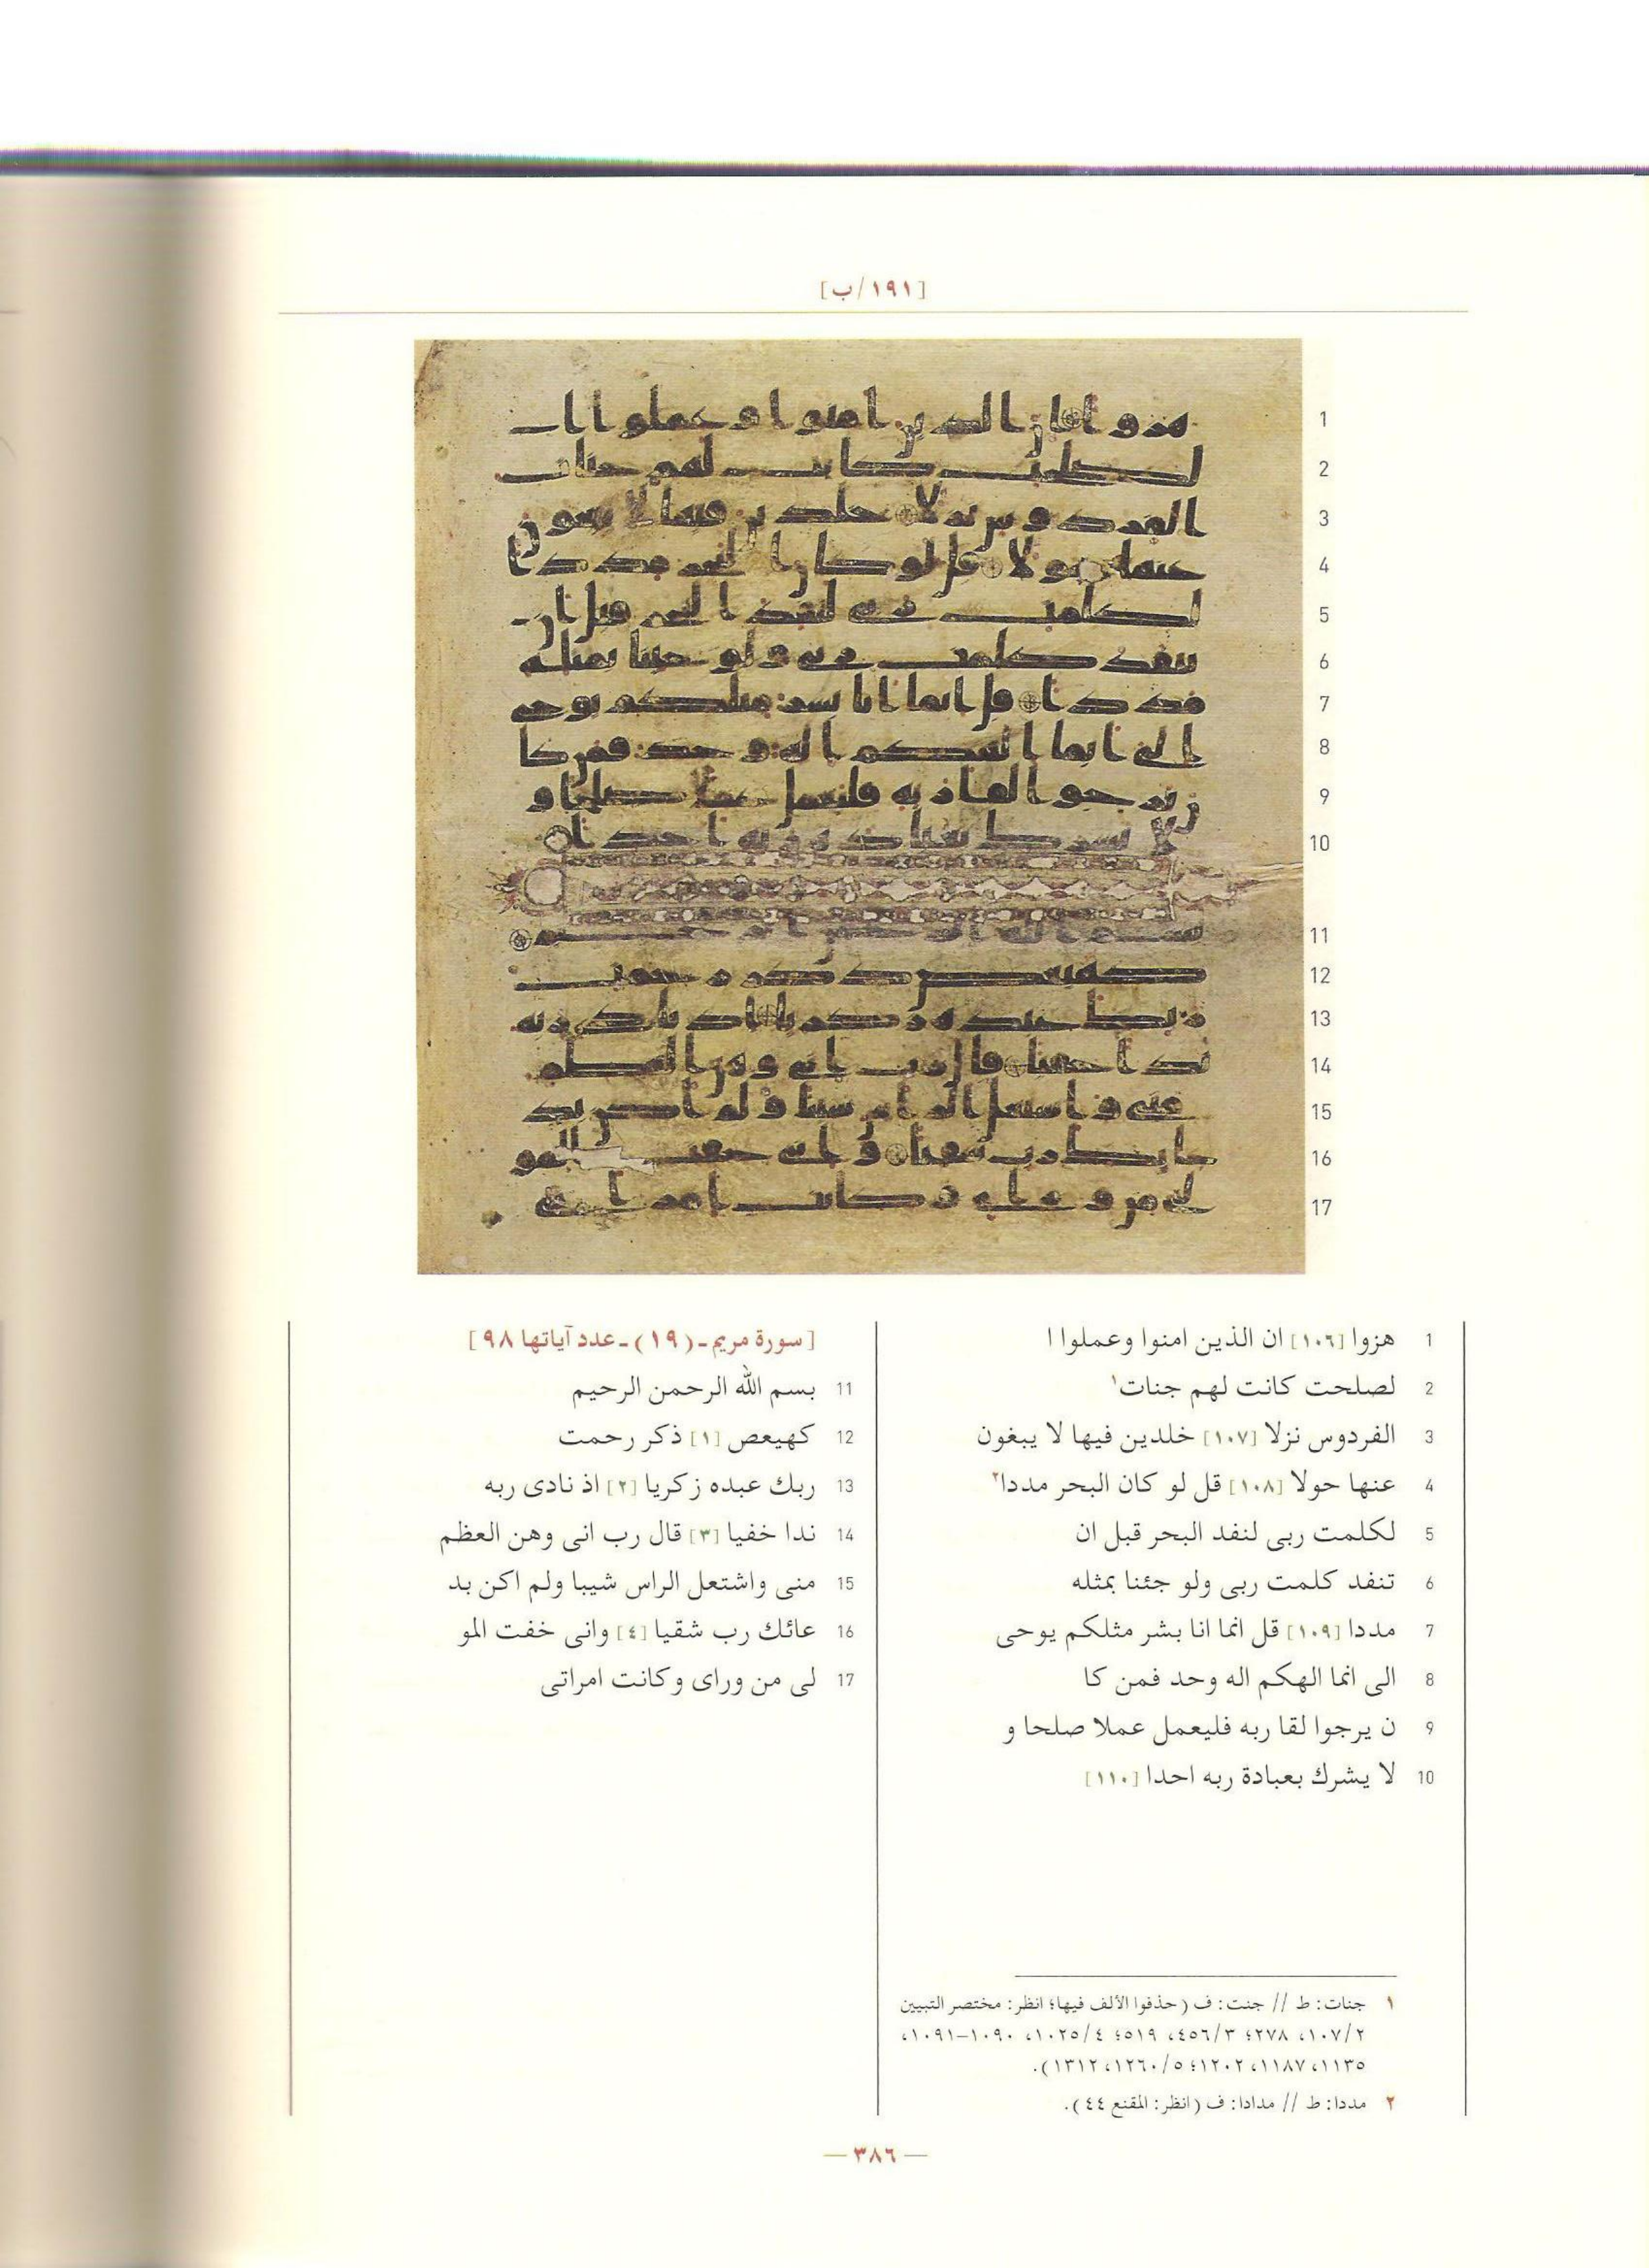 [١٩١/ب]
1 هزوا [١٠٦] ان الذين امنوا وعملوا ا
2 لصلحت كانت لهم جنات١
3 الفردوس نزلا [١٠٧] خلدين فيها لا يبغون
4 عنها حولا [١٠٨] قل لو كان البحر مددا٢
5 لكلمت ربى لنفد البحر قبل ان
6 تنفد كلمت ربى ولو جئنا بمثله
7 مددا [١٠٩] قل انما انا بشر مثلكم يوحى
8 الى انما الهكم اله وحد فمن كا
9 ن يرجوا لقا ربه فليعمل عملا صلحا و
10 لا يشرك بعبادة ربه احدا [١١٠]
[سورة مريم ـ (١٩) ـ عدد آياتها ٩٨]
11 بسم الله الرحمن الرحيم
12 كهيعص [١] ذكر رحمت
13 ربك عبده زكريا [٢] اذ نادى ربه
14 ندا خفيا [٣] قال رب انى وهن العظم
15 منى واشتعل الراس شيبا ولم اكن بد
16 عائك رب شقيا [٤] وانى خفت المو
17 لى من وراى وكانت امراتى
١ جنات: ط // جنت: ف (حذفوا الألف فيها؛ انظر: مختصر التبيين
٢/١٠٧، ٢٧٨؛ ٣/٤٥٦، ٥١٩؛ ٤/١٠٢٥، ١٠٩٠–١٠٩١،
١١٣٥، ١١٨٧، ١٢٠٢؛ ٥/١٢٦٠، ١٣١٢).
٢ مددا: ط // مدادا: ف (انظر: المقنع ٤٤).
— ٣٨٦ —